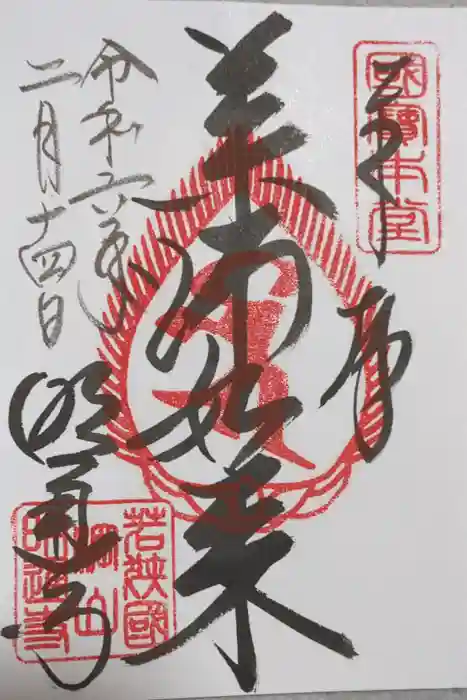 國寶本堂
奉拝
薬師如来
令和六年
二月十四日
明通寺
若狹國
棡山
明通寺